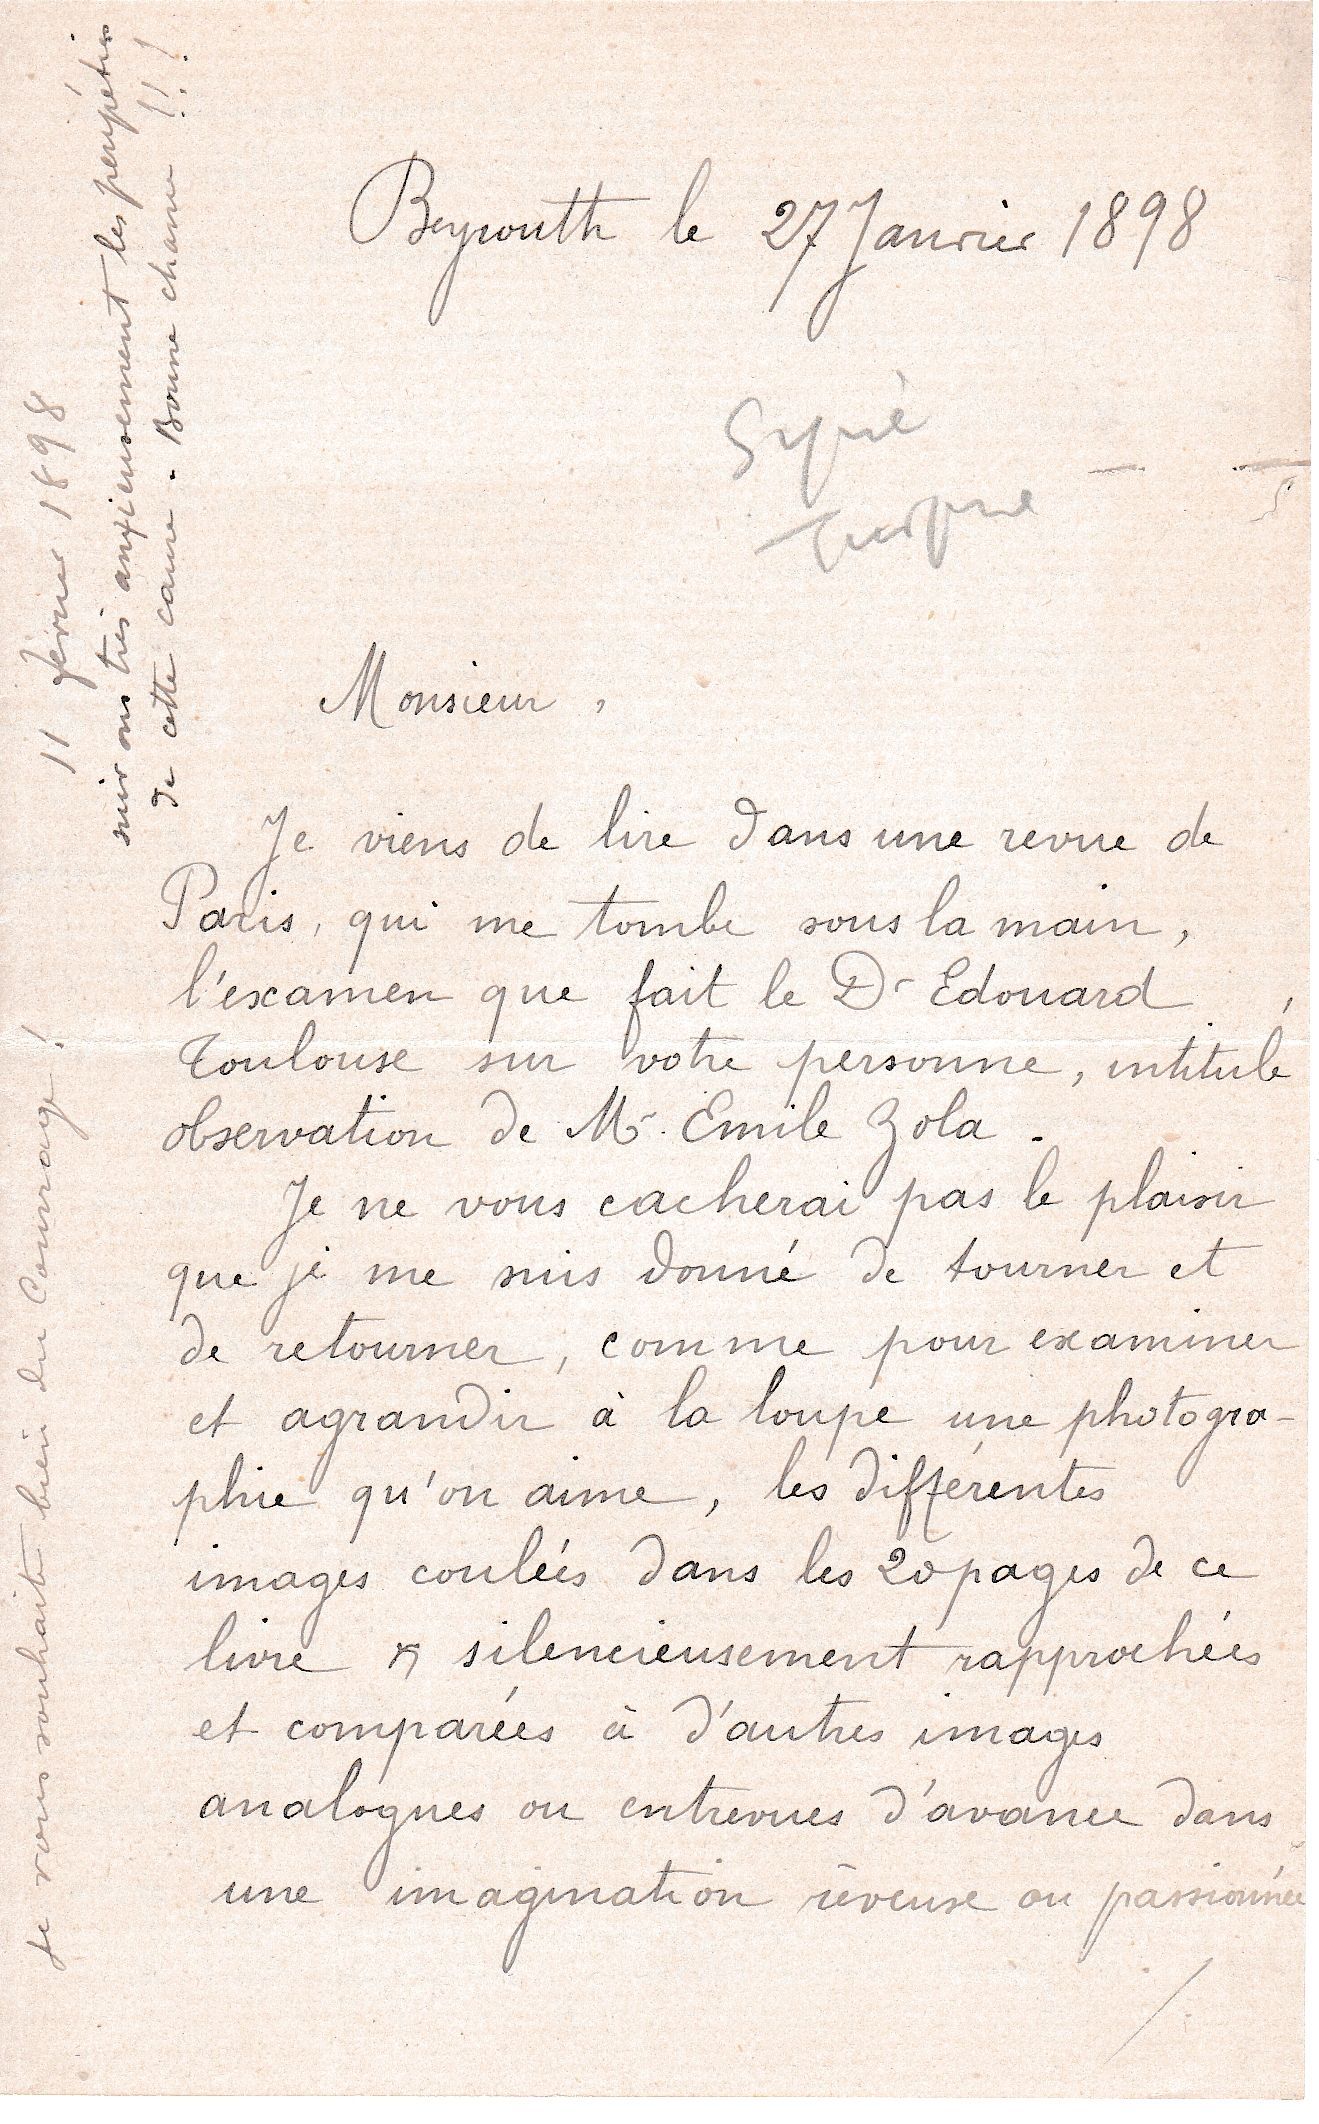 Beyrouth le 27 Janvier 1898
Syrie
Turquie
Monsieur,
Je viens de lire dans une revue de
Paris, qui me tombe sous la main,
l'examen que fait le Dr Edouard
Toulouse sur votre personne, intitulé
observation de Mr. Emile Zola.
Je ne vous cacherai pas le plaisir
que je me suis donné de tourner et
de retourner, comme pour examiner
et agrandir à la loupe une photogra-
phie qu'on aime, les différentes
images coulées dans les 20 pages de ce
livre & silencieusement rapprochées
et comparées à d'autres images
analogues ou entrevues d'avance dans
une imagination rêveuse ou passionnée
11 février 1898
suivons très anxieusement les péripéties
de cette cause. Bonne chance !!!
Je vous souhaite bien du Courage !